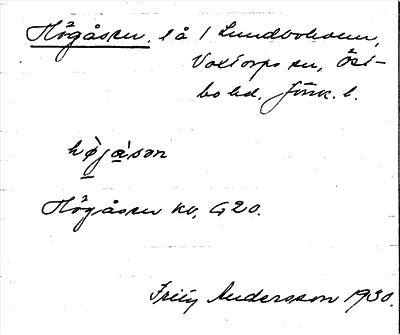 Högåsen. lå i Lundboholm,
Voxtorps sn, Öst-
bo hd. Jönk. l.
hø̀jɑ̀sən
Högåsen kv, G20.
Fritz Andersson 1930.